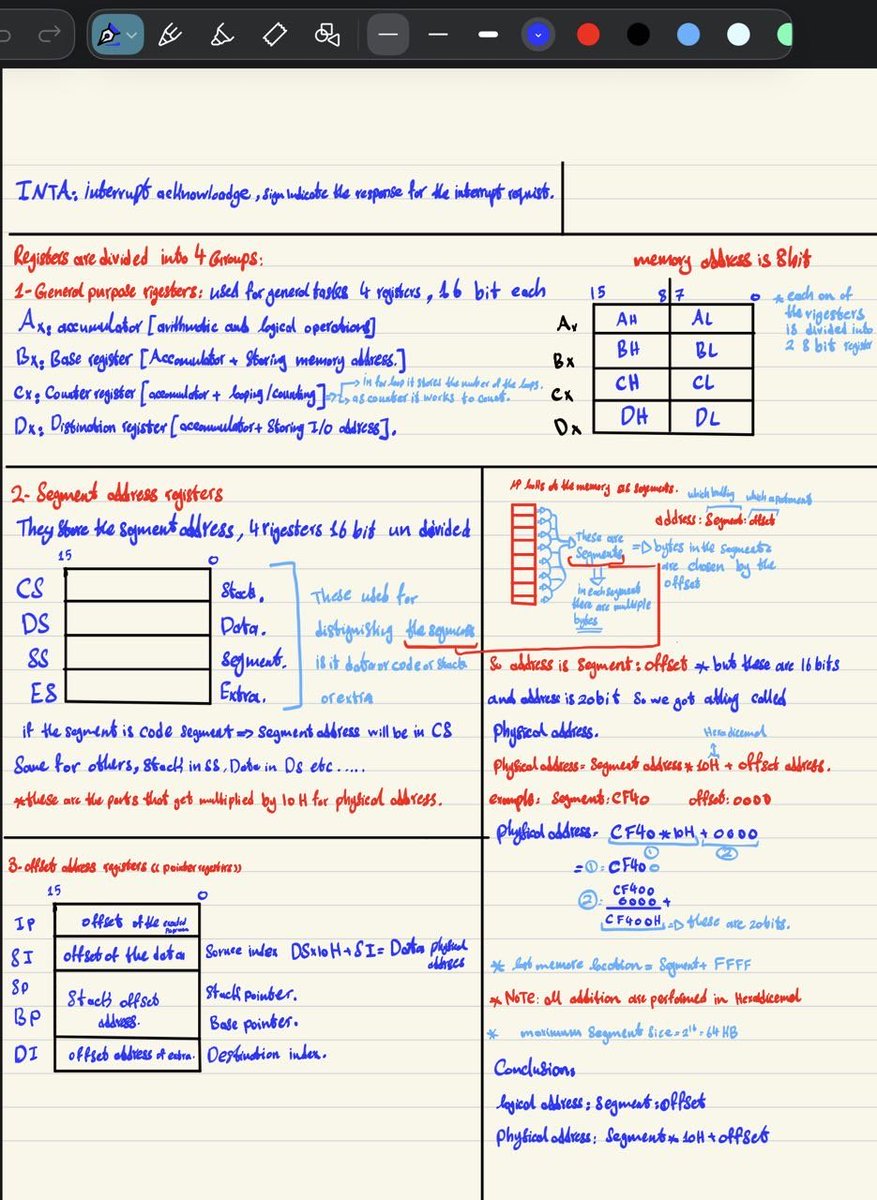 INTA: interrupt acknowloadge, sign indicate the response for the interrupt requist.
Registers are divided into 4 Groups:
1-General purpose rigesters: used for general tastes 4 registers, 16 bit each
Ax: accumulator [arithmatic and logical operations]
Bx: Base register [Accomulator + Storing memory address.]
Cx: Counter register [accomulator + looping/counting]
in for loop it stores the number of the loops.
as counter it works to count.
Dx: Distination register [accomulator + Storing I/O address].
memory address is 8bit
15 8 7 0
Ax AH AL
Bx BH BL
Cx CH CL
Dx DH DL
* each on of
the rigesters
is divided into
2 8 bit register
2- Segment address registers
They store the segment address, 4 rigesters 16 bit un divided
15 0
CS Stack.
DS Data.
SS Segment.
ES Extra.
These used for
distiguishing the segments
is it data or code or stack
or extra
if the segment is code segment => Segment address will be in CS
Same for others, Stack in SS, Data in Ds etc.....
*these are the parts that get multiplied by 10H for physical address.
3-offset address registers << pointer registers >>
15 0
IP offset of the
SI offset of the data Soruce index DS×10H+SI= Data physical
address
SP Stack pointer.
Stack offset
address.
BP Base pointer.
DI offset address of extra. Destination index.
MP looks at the memory as segments.
which building which apartment
address: Segment: offset
These are
Segments
=> bytes in the segments
are chosen by the
offset
in each segment
there are multiple
bytes
So address is Segment: offset * but these are 16 bits
and address is 20bit So we got a thing called
Physical address.
Hexadicemal
Physical address= Segment address * 10H + offset address.
example: Segment: CF40 offset: 0000
Physical address= CF40 * 10H + 0000
① ②
= ①: CF40 0
②: CF400
0000 +
CF400H => these are 20bits.
* last memore location = Segment + FFFF
* NOTE: all addition are performed in Hexadicemal
* maximum Segment Size = 2¹⁶ = 64 KB
Conclusion:
logical address: Segment: offset
Physical address: Segment * 10H + offset